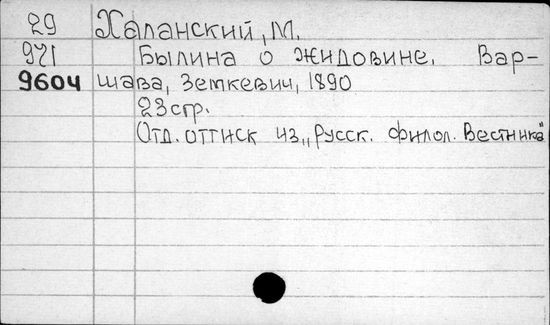 29 Халанский, М.
971 Былина о Жидовине. Вар-
9604 шава, Земкевич, 1890
23стр.
Отд. оттиск из „Русск. филол. Вестника"